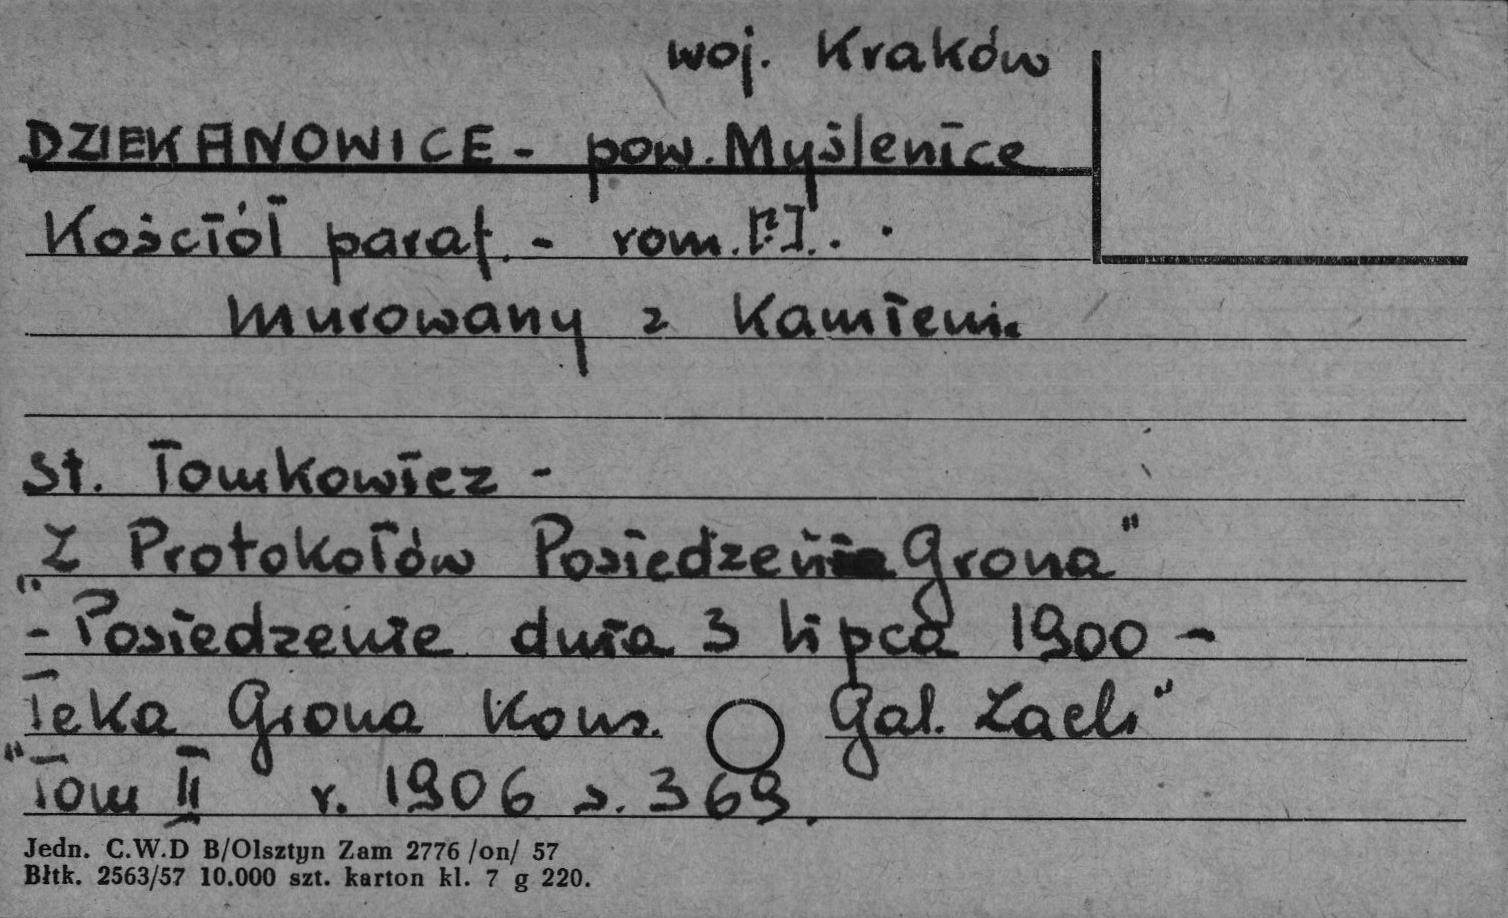 woj. Kraków
DZIEKANOWICE - pow. Myślenice
Kościół paraf. - rom. [?]. .
murowany z kamieni
St. Tomkowicz -
"Z Protokołów Posiedzeń Grona"
- Posiedzenie dnia 3 lipca 1900 -
"Teka Grona Kons. Gal. Zach"
Tom II r. 1906 s. 369.
Jedn. C.W.D B/Olsztyn Zam 2776 /on/ 57
Błtk. 2563/57 10.000 szt. karton kl. 7 g 220.